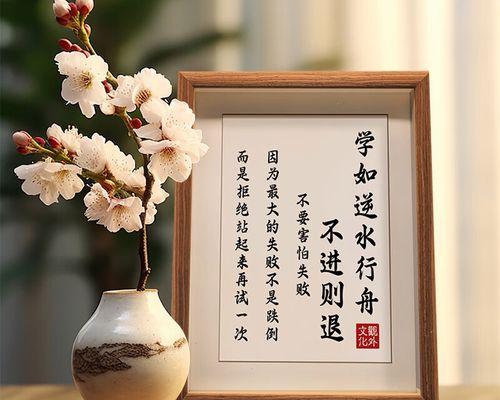 学如逆水行舟
不进则退
觀外
文化
不要害怕失败
因为最大的失败不是跌倒
而是拒绝站起来再试一次